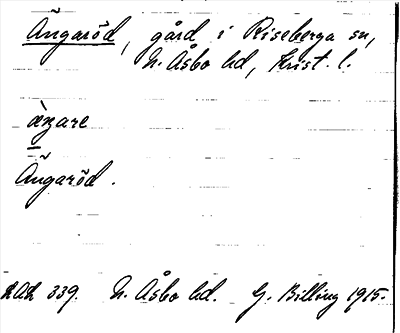 Ängaröd, gård i Riseberga sn,
N. Åsbo hd, Krist. l.
Ängaröd.
339. N. Åsbo hd. G. Billing 1915.